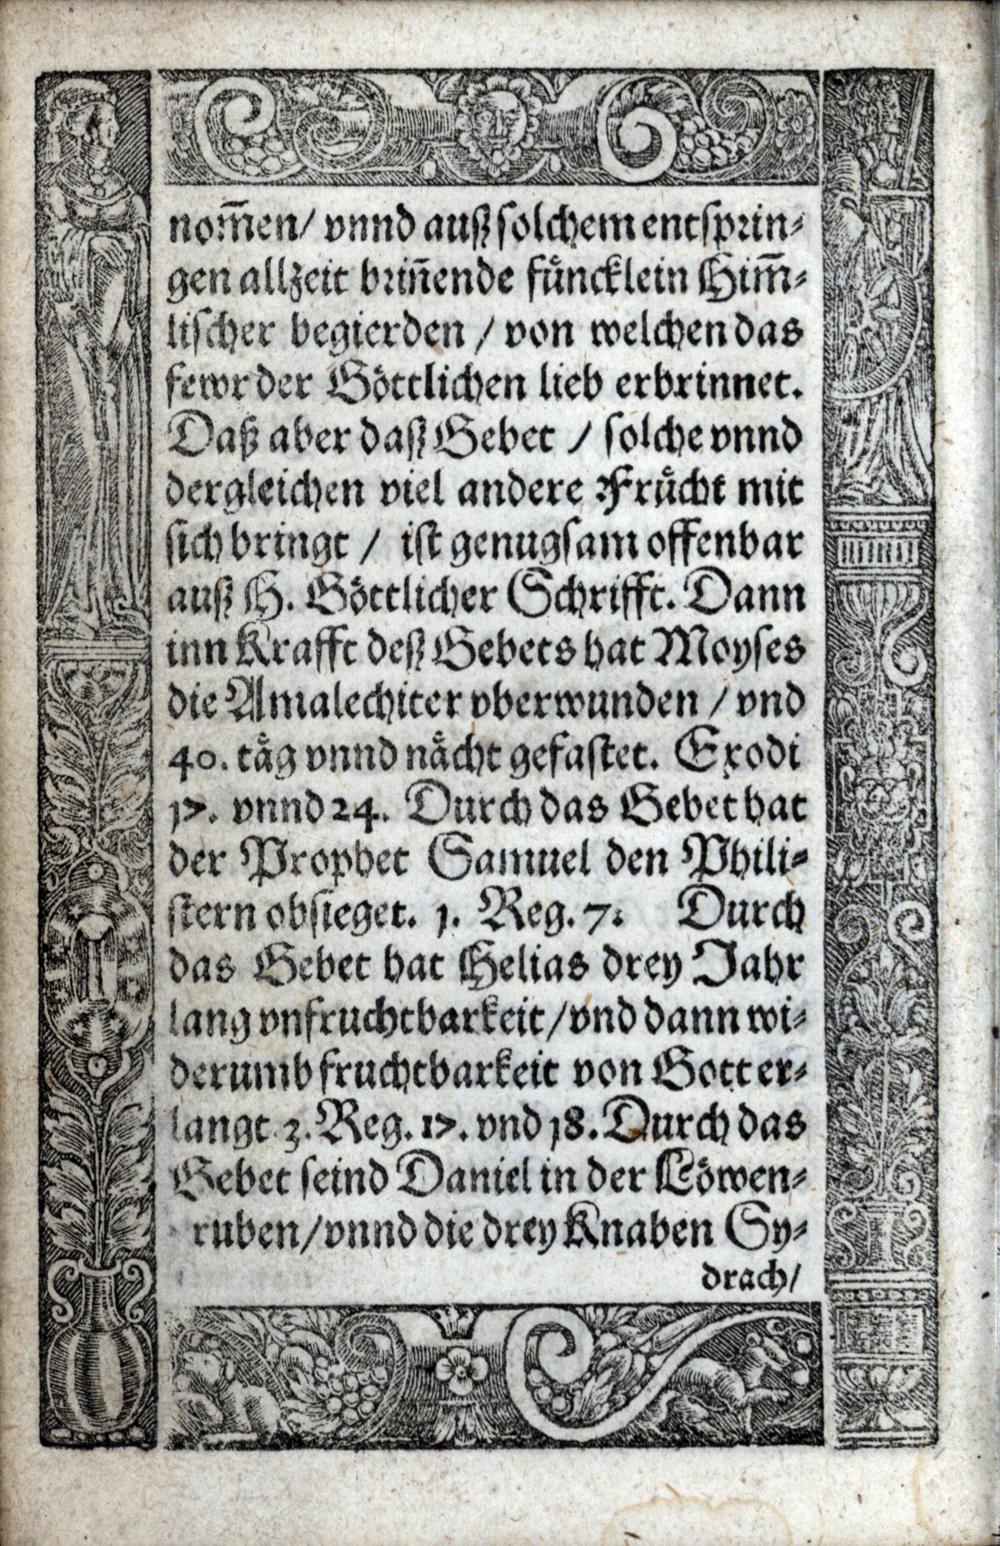 nom̃en/ vnnd auß solchem entsprin⸗
gen allzeit briñende fuͤncklein Him̃⸗
lischer begierden / von welchen das
fewr der Goͤttlichen lieb erbrinnet.
Daß aber daß Gebet / solche vnnd
dergleichen viel andere Fruͤcht mit
sich bringt / ist genugsam offenbar
auß H. Goͤttlicher Schrifft. Dann
inn Krafft deß Gebets hat Moyses
die Amalechiter vberwunden / vnd
40. taͤg vnnd naͤcht gefastet. Exodi
17. vnnd 24. Durch das Gebet hat
der Prophet Samuel den Phili⸗
stern obsieget. 1. Reg. 7. Durch
das Gebet hat Helias drey Jahr
lang vnfruchtbarkeit/vnd dann wi⸗
derumb fruchtbarkeit von Gott er⸗
langt 3. Reg. 17. vnd 18. Durch das
Gebet seind Daniel in der Loͤwen⸗
ruben/vnnd die drey Knaben Sy⸗
drach/